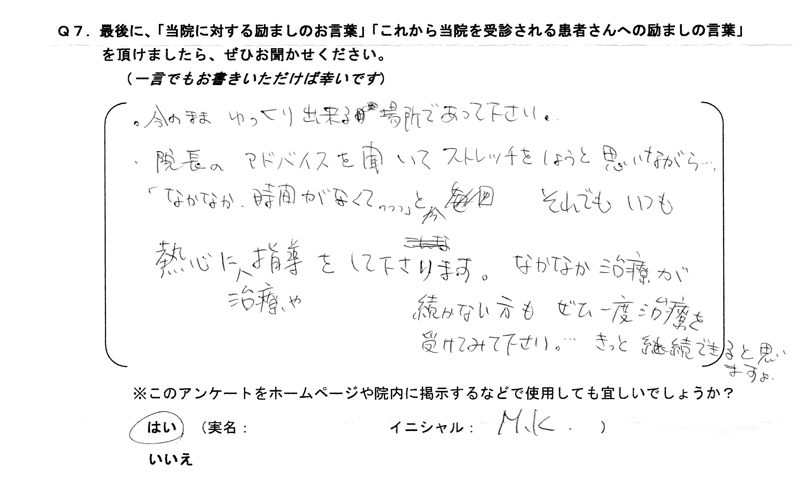 Q7．最後に、「当院に対する励ましのお言葉」「これから当院を受診される患者さんへの励ましの言葉」
を頂けましたら、ぜひお聞かせください。
（一言でもお書きいただければ幸いです）
。今のまま ゆっくり出来る場所であって下さい。
・院長の アドバイスを聞いて ストレッチをしようと思いながら…
「なかなか、時間がなくて、、、」とか 毎回 それでも いつも
熱心に 治療や 指導をして下さります。 なかなか治療が
続かない方も ぜひ一度治療を
受けてみて下さい。… きっと 継続できると思い
ますよ.
※このアンケートをホームページや院内に掲示するなどで使用しても宜しいでしょうか？
はい （実名： イニシャル： M.K. ）
いいえ